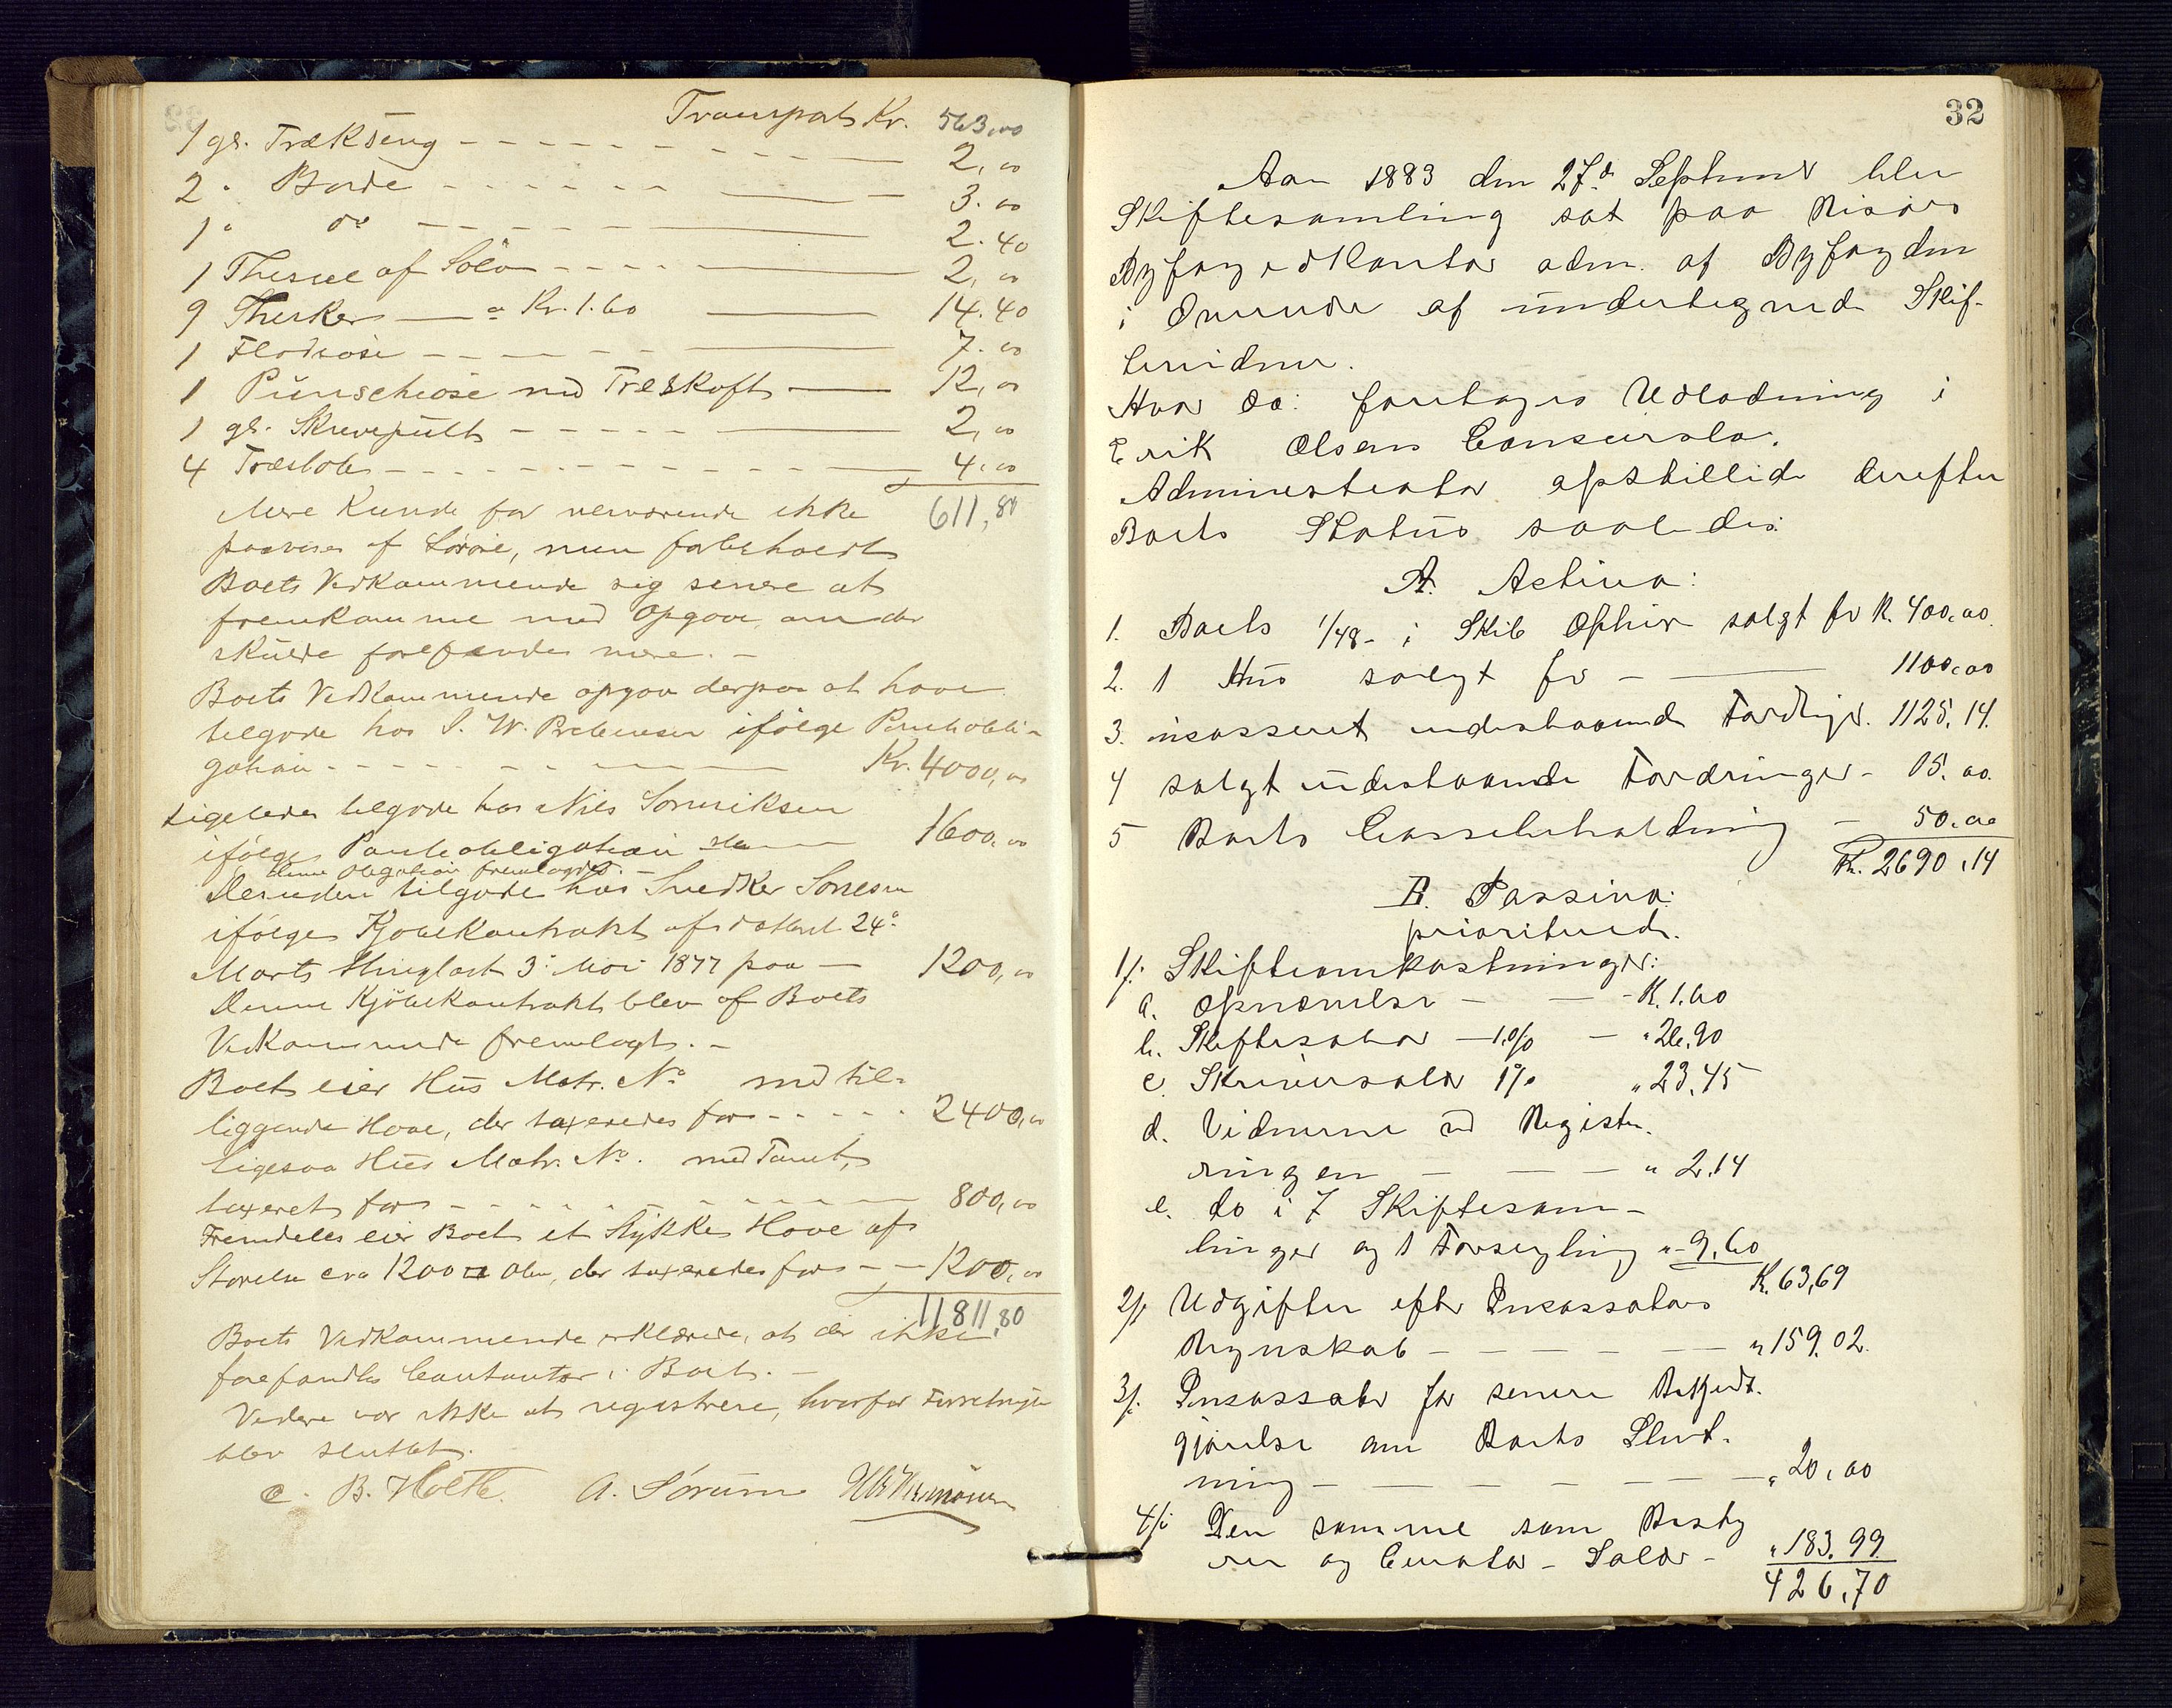 Transport Kr. 563,00
1 gl. Trækseng 2,00
2 " Borde 3.00
1 " do 2.40
1 Theske af Sölv 2,00
9 Theskeer a Kr. 1.60 14.40
1 Flødeøse 7.00
1 Punscheøse med Træskaft 12,00
1 gl. Skrivepult 2,00
4 Træstole 4.00
611,80
Mere kunde for nærværende ikke
paavises af Løsøre, men forbeholdt
Boets Vedkommende sig senere at
fremkomme med Opgave, om der
skulde forefindes mere. -
Boets Vedkommende opgav derpaa at have
tilgode hos S. W. Prebensen ifölge Panteobli-
gation Kr. 4000,00
Ligeledes tilgode hos Nils Sörensen
ifölge Panteobligation 1600,00
denne Obligation fremlagdes. -
Desuden tilgode hos Snedker Sörensen
ifölge Kjöbekontrakt af dateret 24de
Marts thinglæst 3die Mai 1877 paa 1200,00
Denne Kjöbekontrakt blev af Boets
Vedkommende fremlagt. -
Boet eier Hus Matr. No med til-
liggende Have, der taxeredes for 2400,00
Ligesaa Hus Matr. No. med Tomt,
taxeret for 800,00
Fremdeles eier Boet et Stykke Have af
Störrelse ca 1200 □ Alen, der taxeredes for 1200,00
11811,80
Boets Vedkommende erklærede, at der ikke
forefandtes Contanter i Boet. -
Videre var ikke at registrere, hvorfor Forretningen
blev sluttet.
C. B. Holth. A. Sörum
32
Aar 1883 den 27de September blev
Skiftesamling sat paa Risörs
Byfogedkontor adm. af Byfogden
i Overvær af undertegnede Skif-
tevidner.
Hvor da: foretages Udlodning i
Erik Olsens Concursbo.
Administrator opstillede derefter
Boets Status saaledes:
A. Activa:
1. Boets 1/48 - i Skib Ophir solgt for K. 400,00.
2. 1 Hus solgt for - 1100,00
3. incasseret udestaaende Fordringer. 1125,14.
4 solgt udestaaende Fordringer - 15,00.
5 Boets Cassebeholdning - 50,00
Kr. 2690,14
B. Passiva:
prioriterede.
1/. Skifteomkostninger:
a. Opnævnelse - K. 1.60
b. Skiftesalær - 1% - " 26,90
c. Skriversalær 1% " 23,45
d. Vidnerne ved Registre-
ringen " 2,14
e. do i 7 Skiftesam-
linger og 1 Forsegling " 9,60
K. 63,69
2/. Udgifter efter Incassators
Regnskab " 159,02.
3/. Incassator for senere Bekjendt-
gjørelse om Boets Slut-
ning " 20,00
4/. Den samme som Besty
rer og Curator - Salær - " 183,99
426,70